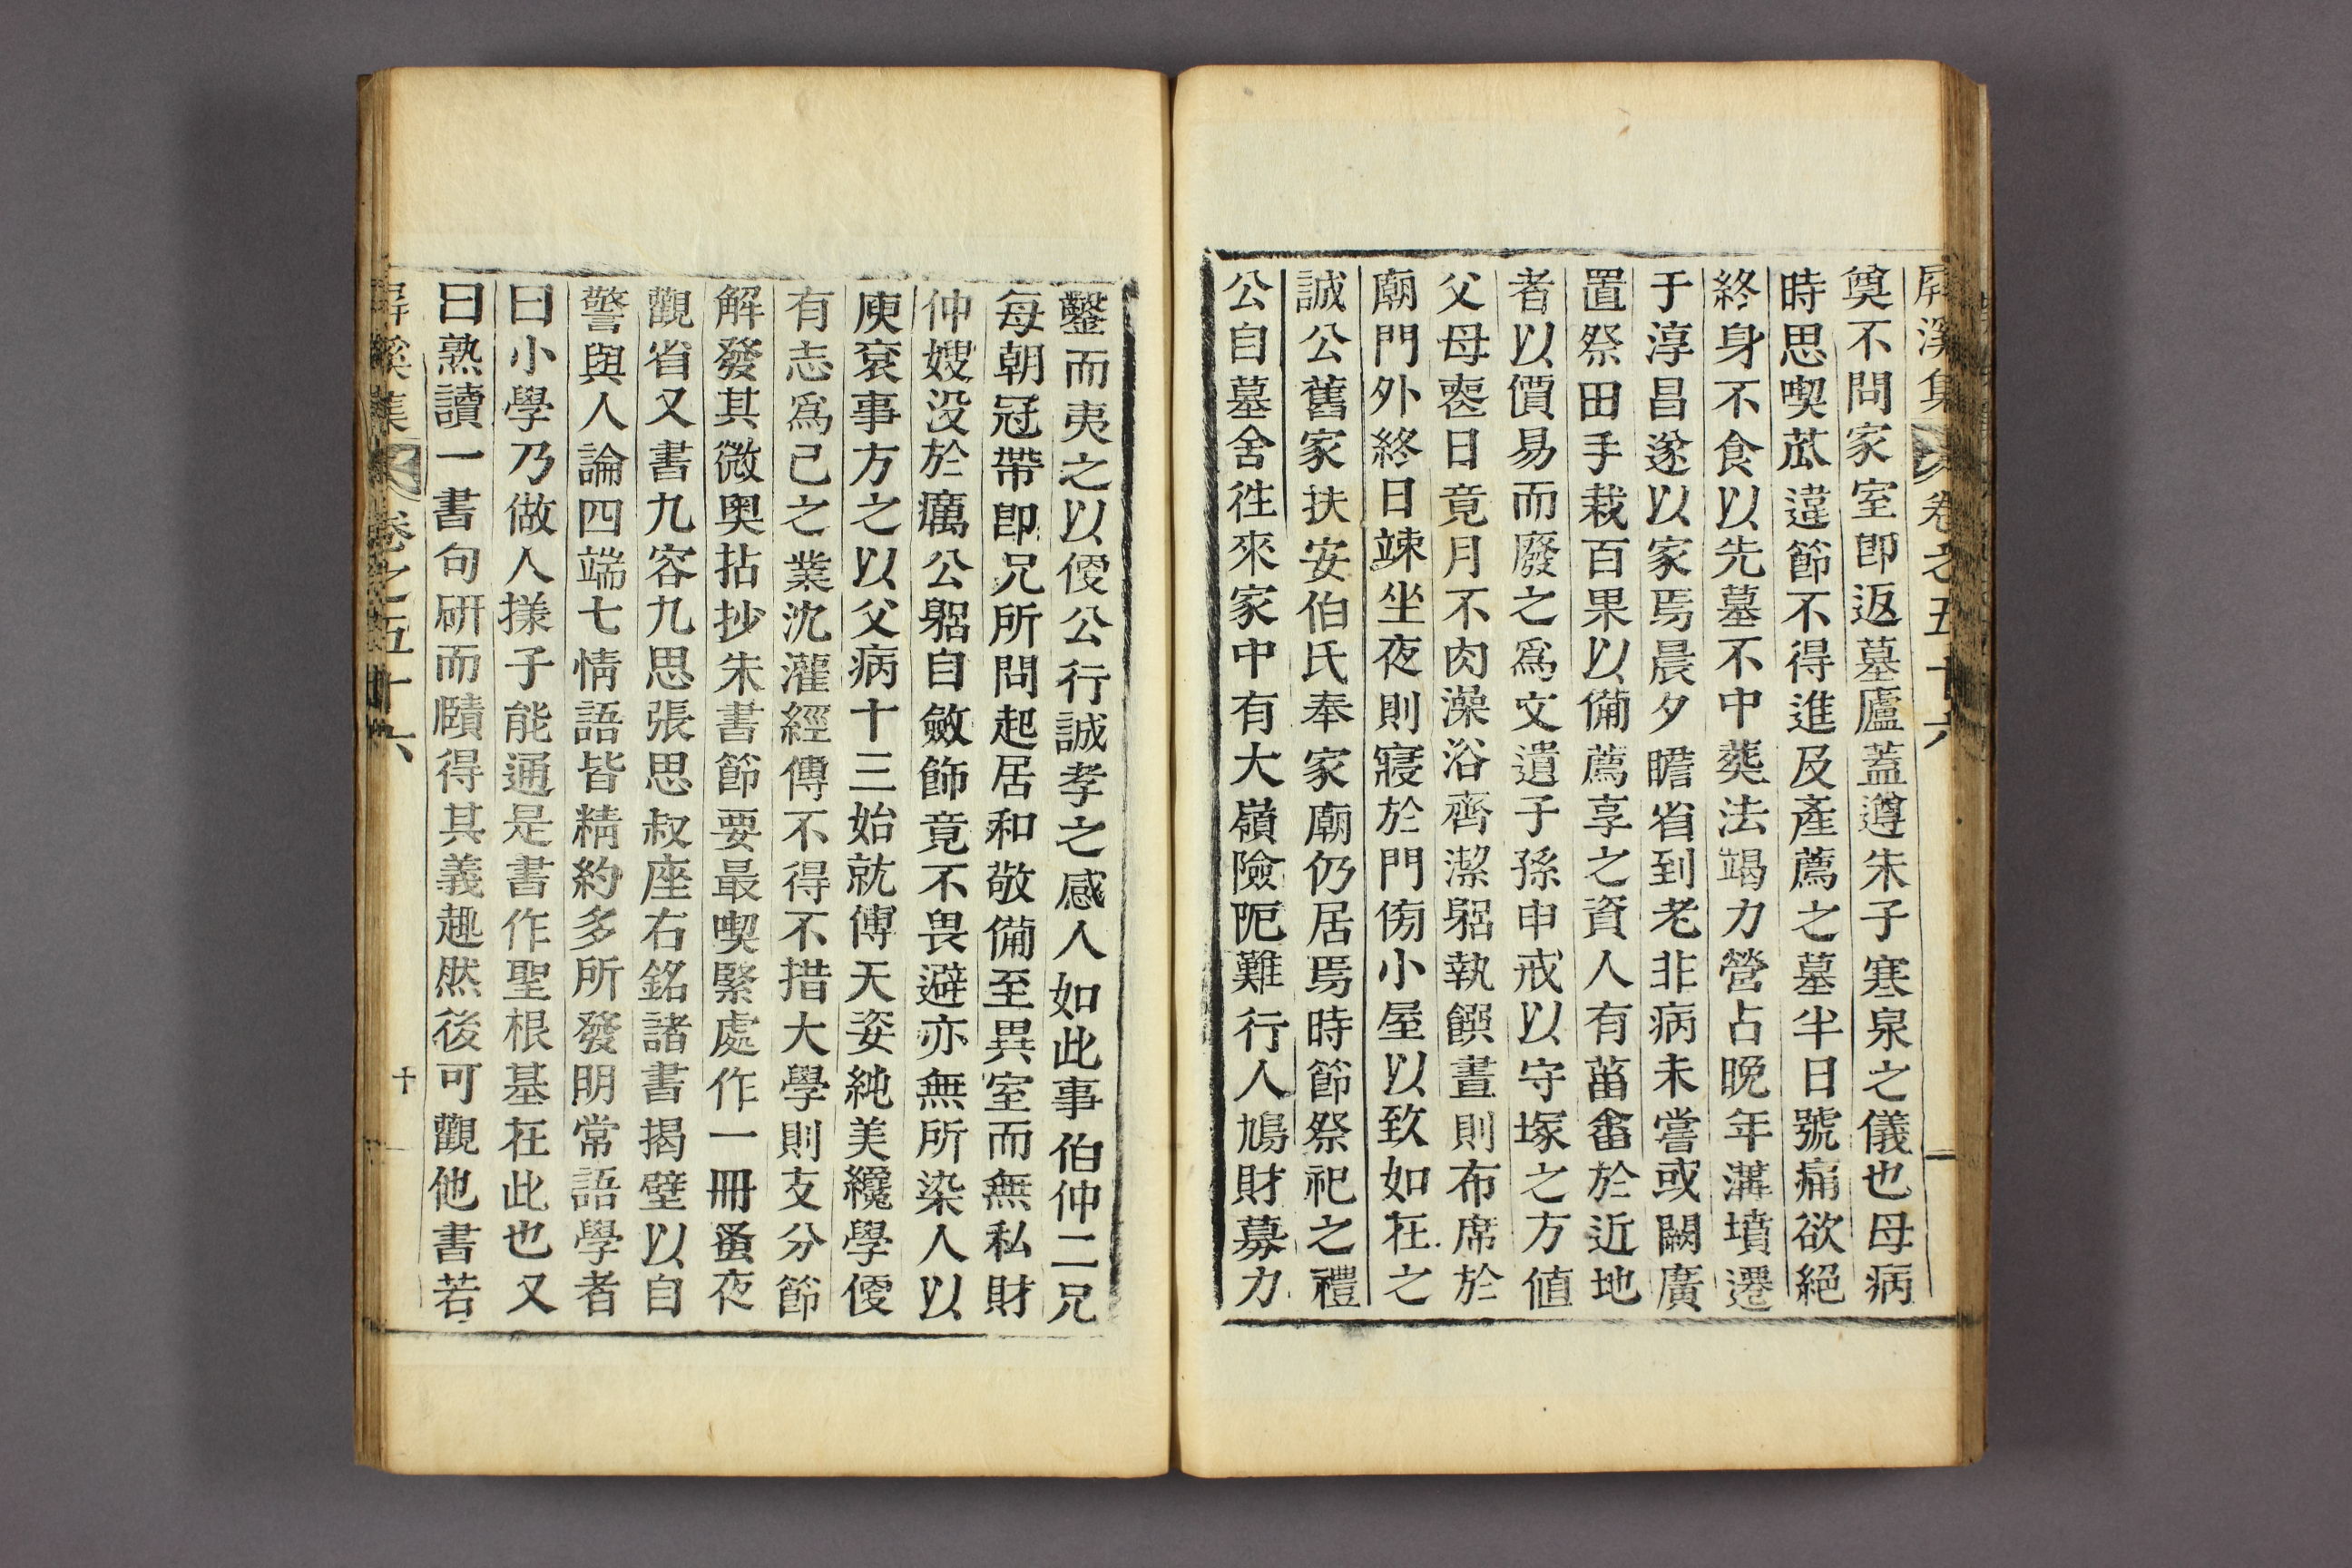 屛溪集 卷之五十六
奠不問家室卽返墓廬蓋遵朱子寒泉之儀也母病
時思喫苽違節不得進及產薦之墓半日號痛欲絕
終身不食以先墓不中葬法竭力營占晩年溝墳遷
于淳昌遂以家焉晨夕瞻省到老非病未嘗或闕廣
置祭田手栽百果以備薦享之資人有菑畬於近地
者以價易而廢之爲文遺子孫申戒以守塚之方値
父母喪日竟月不肉澡浴齊潔躳執饌晝則布席於
廟門外終日竦坐夜則寢於門傍小屋以致如在之
誠公舊家扶安伯氏奉家廟仍居焉時節祭祀之禮
公自墓舍徃來家中有大嶺險阨難行人鳩財募力
鑿而夷之以便公行誠孝之感人如此事伯仲二兄
每朝冠帶卽兄所問起居和敬備至異室而無私財
仲嫂没於癘公躳自斂飾竟不畏避亦無所染人以
庾袞事方之以父病十三始就傅天姿純美纔學便
有志爲己之業沈灌經傳不得不措大學則支分節
解發其微奧拈抄朱書節要最喫緊處作一冊蚤夜
觀省又書九容九思張思叔座右銘諸書揭壁以自
警與人論四端七情語皆精約多所發明常語學者
曰小學乃做人㨾子能通是書作聖根基在此也又
曰熟讀一書句硏而賾得其義趣然後可觀他書若
屛溪集 卷之五十六 十